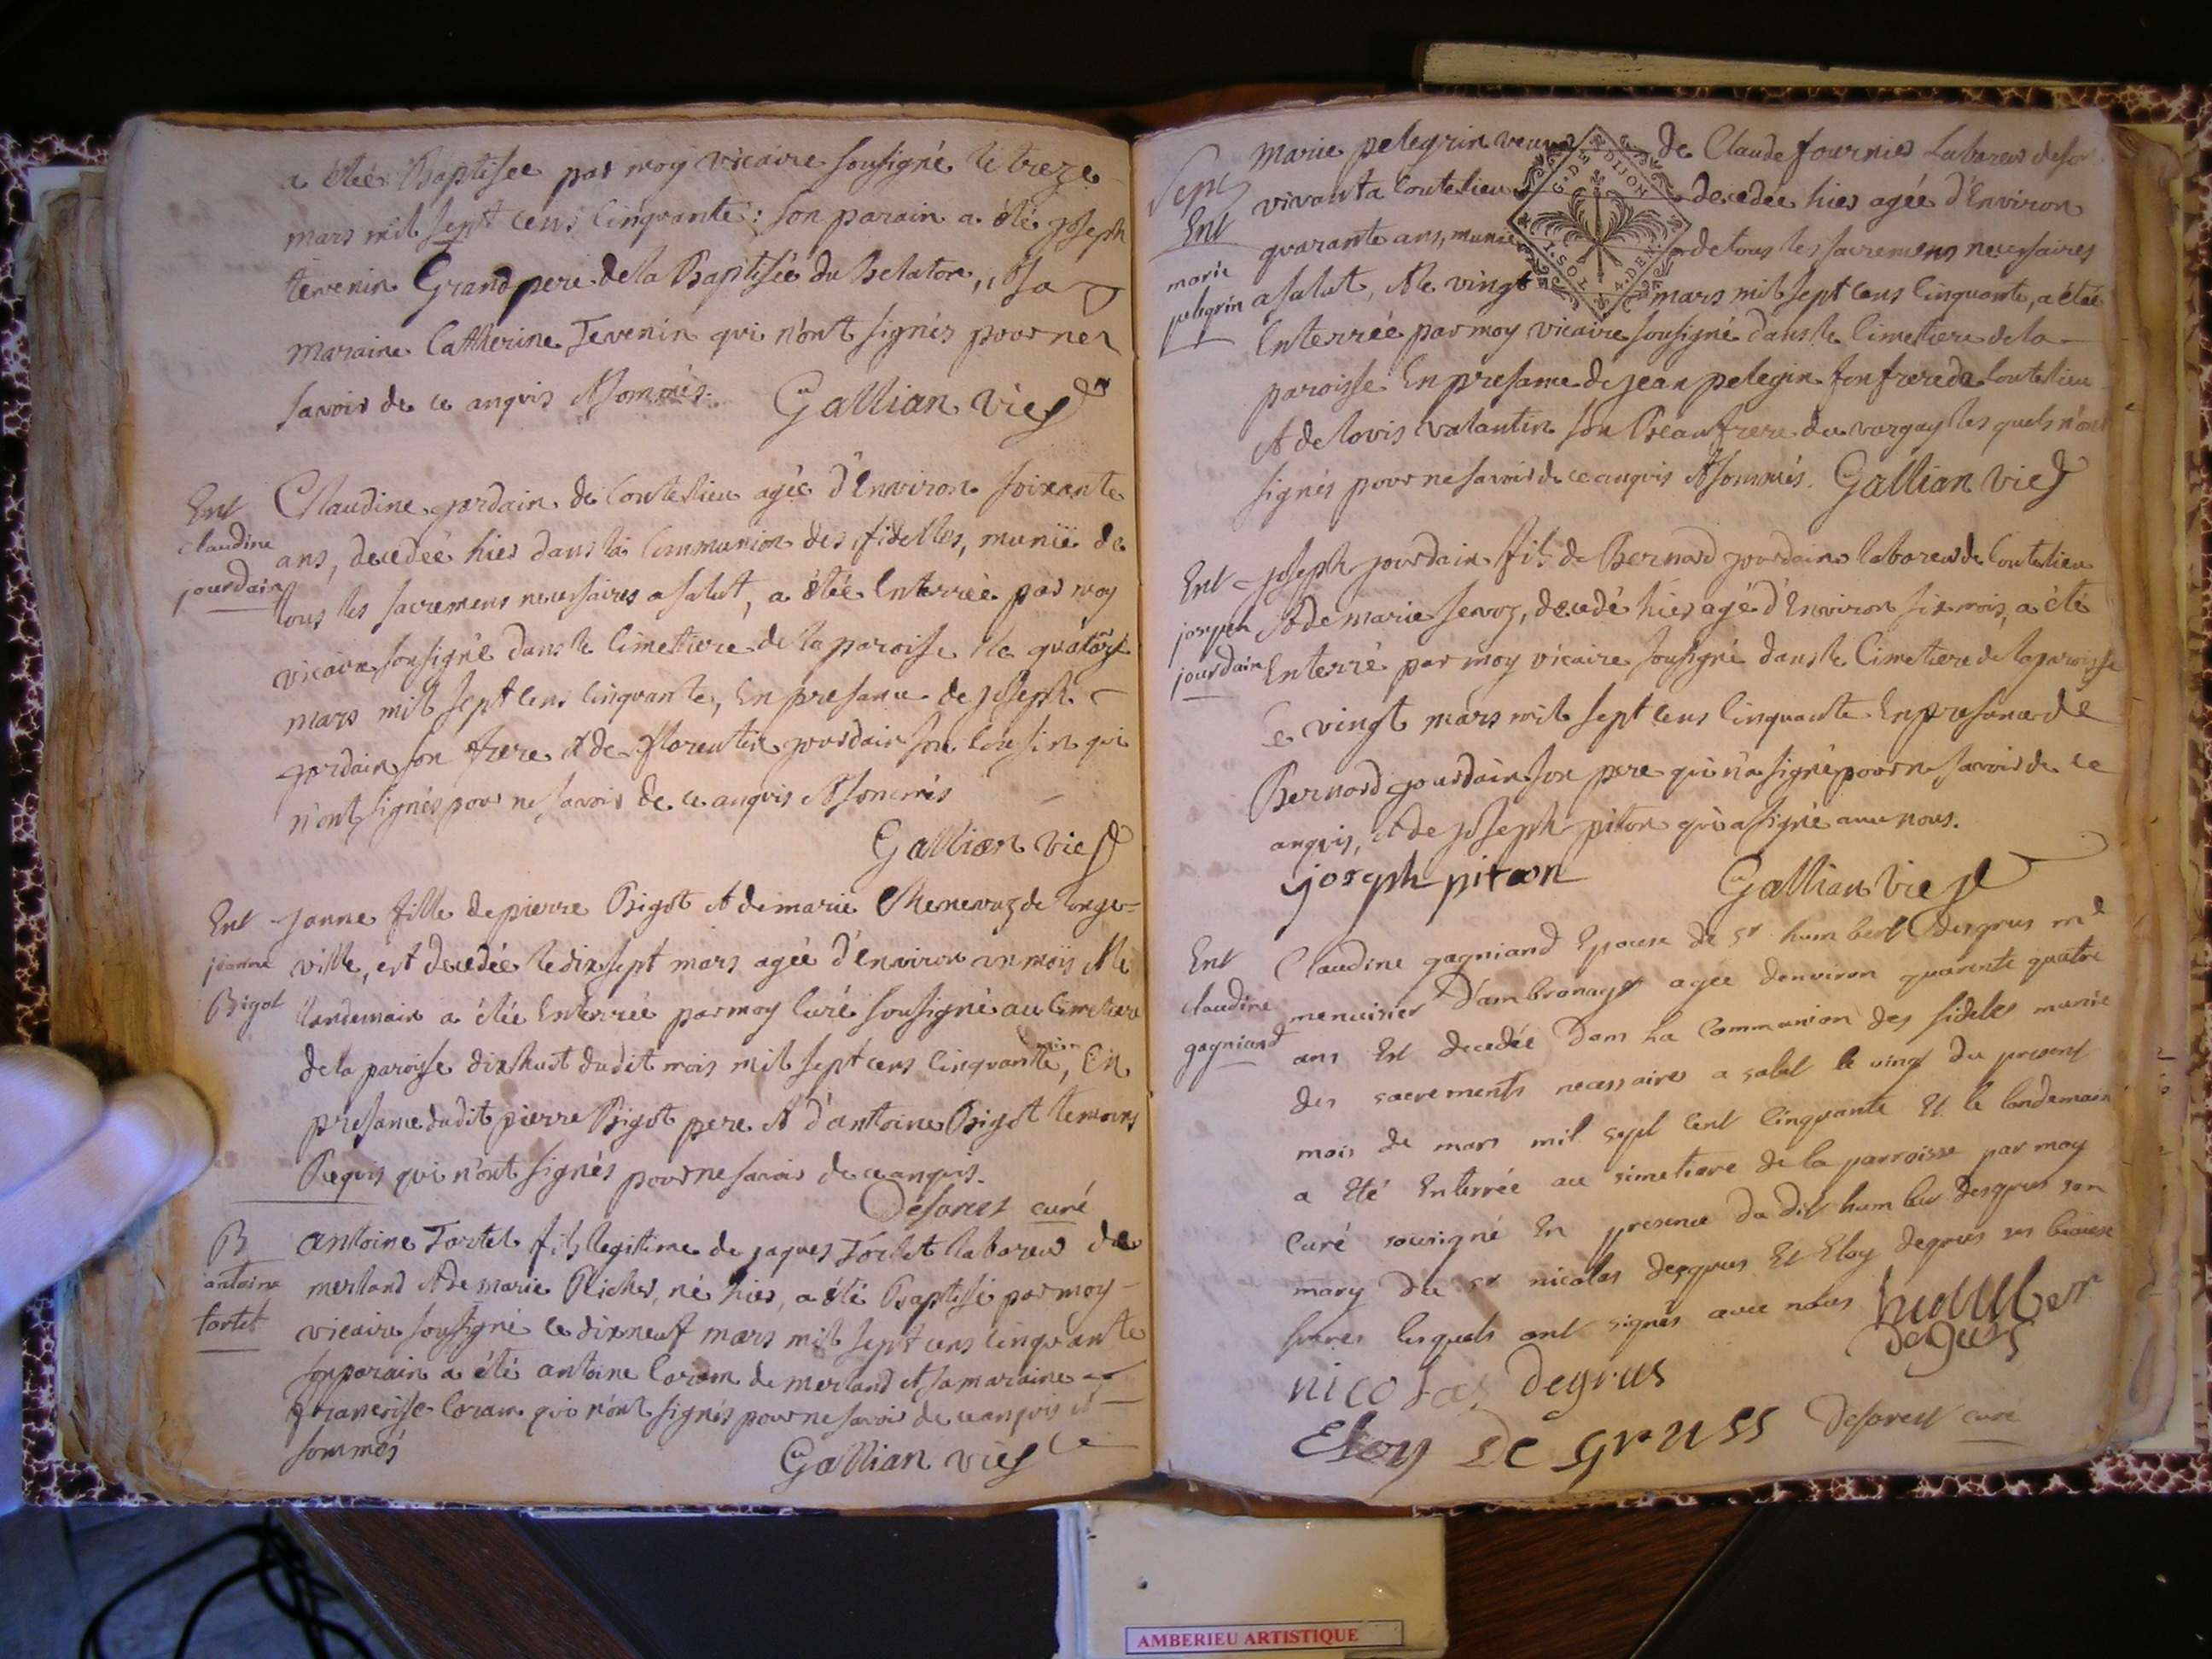 a étée Baptisée par moy vicaire sousigné le treze
mars mil sept cens cinquante: son parain a été joseph
tevenin Grand pere de la Baptisée du Belaton, et sa
maraine Catherine Tevenin qui n'ont signés pour ne
savoir de ce anquis et sommés. Gallian vic
Ent
claudine
jourdain
Claudine jordain de Coutelieu agée d'Environ soixante
ans, decedée hier dans la Communion des fidelles, munie de
tous les sacremens necessaires a salut, a étée Enterrée par moy
vicaire sousigné dans le Cimetiere de la paroisse le quatorze
mars mil sept cens cinquante, En presance de joseph
jordain son frere et de florentin jourdain son cousin qui
n'ont signés pour ne savoir de ce anquis et sommés
Gallian vic
Ent
jeanne
Bigot
janne fille de pierre Bigot et de marie Chenevaz de longe-
ville, est decedée le dix sept mars agée d'environ un mois et le
landemain a étée Enterrée par moy Curé sousigné au Cimetiere
de la paroisse dixhuit dudit mois mil sept cens cinquante, En
presance dudit pierre Bigot pere et d'antoine Bigot temoins
Requis qui n'ont signés pour ne savoir de ce anquis.
Deforest curé
B
antoine
tortet
antoine Tortet fils legitime de jaques Tortet laboreur de
merland et de marie Richer, né hier, a été Baptisé par moy
vicaire sousigné le dixneuf mars mil sept cens cinquante
son parain a été antoine Coram de merland et sa maraine
francoise Coram qui n'ont signés pour ne savoir de ce anquis et
sommés
Gallian vic
Sept
Ent
marie
pelegrin
Marie pelegrin veuve de Claude fournier Laboreur de son
vivant a Coutelieu decedée hier agée d'Environ
quarante ans, munie de tous les sacremens necessaires
a salut, et le vingt mars mil sept cens cinquante, a étée
Enterrée par moy vicaire sousigné dans le Cimetiere de la
paroisse En presance de jean pelegin son frere de Coutelieu
et de lovis valantin son Beaufrere du vorgay les quels n'ont
signés pour ne savoir de ce anquis et sommés. Gallian vic
G. DE DIJON
1. SOL 4. DEN.
Ent
joseph
jourdain
joseph jourdain fils de Bernard jourdain laboreur de Coutelieu
et de marie servoz, decedé hier agé d'Environ six mois, a été
Enterré par moy vicaire sousigné dans le Cimetiere de la paroisse
le vingt mars mil sept cens cinquante En presance de
Bernard jourdain son pere qui n'a signé pour ne savoir de ce
anquis, et de joseph piton qui a signé avec nous.
joseph piton Gallian vic
Ent
claudine
gagniand
Claudine gagniand Epouse de sr humbert Desgrus md
menuisier D'ambronay agée denviron quarente quatre
ans Est decedée Dans La Communion des fideles munie
des sacrements necessaires a salut le vingt du present
mois de mars mil sept cent cinquante Et le landemain
a Eté Enterrée au simetiere de la parroisse par moy
Curé sousigné En presence du dit humber Desgrus son
mary du sr nicolas desgrus Et Eloy degrus ses beaux
freres lesquels ont signés avec nous humber
degrus
nicolas Degrus
Eloy De gruss Deforest curé
AMBERIEU ARTISTIQUE